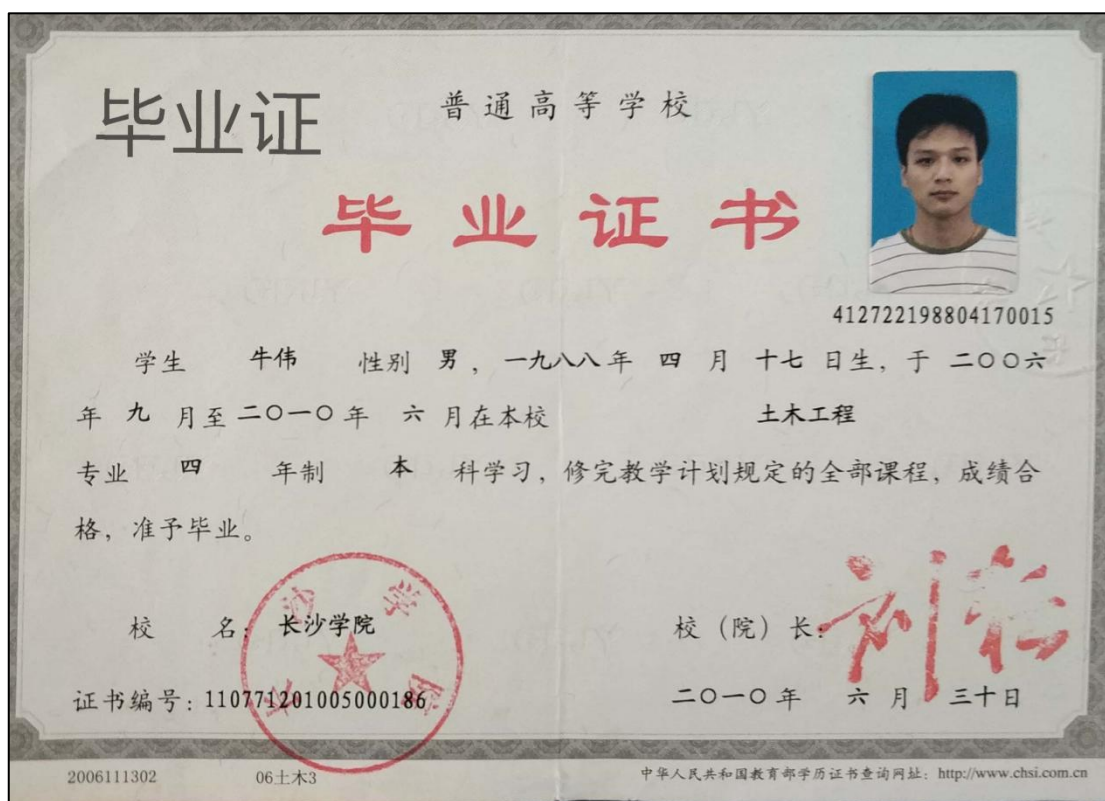 毕业证
普通高等学校
毕业证书
412722198804170015
学生 牛伟 性别 男，一九八八年 四 月 十七 日生，于 二〇〇六
年 九 月至 二〇一〇 年 六 月在本校 土木工程
专业 四 年制 本 科学习，修完教学计划规定的全部课程，成绩合
格，准予毕业。
校 名：长沙学院
校（院）长：
长沙学院
证书编号：110771201005000186
二〇一〇年 六 月 三十日
2006111302 06土木3 中华人民共和国教育部学历证书查询网址：http://www.chsi.com.cn